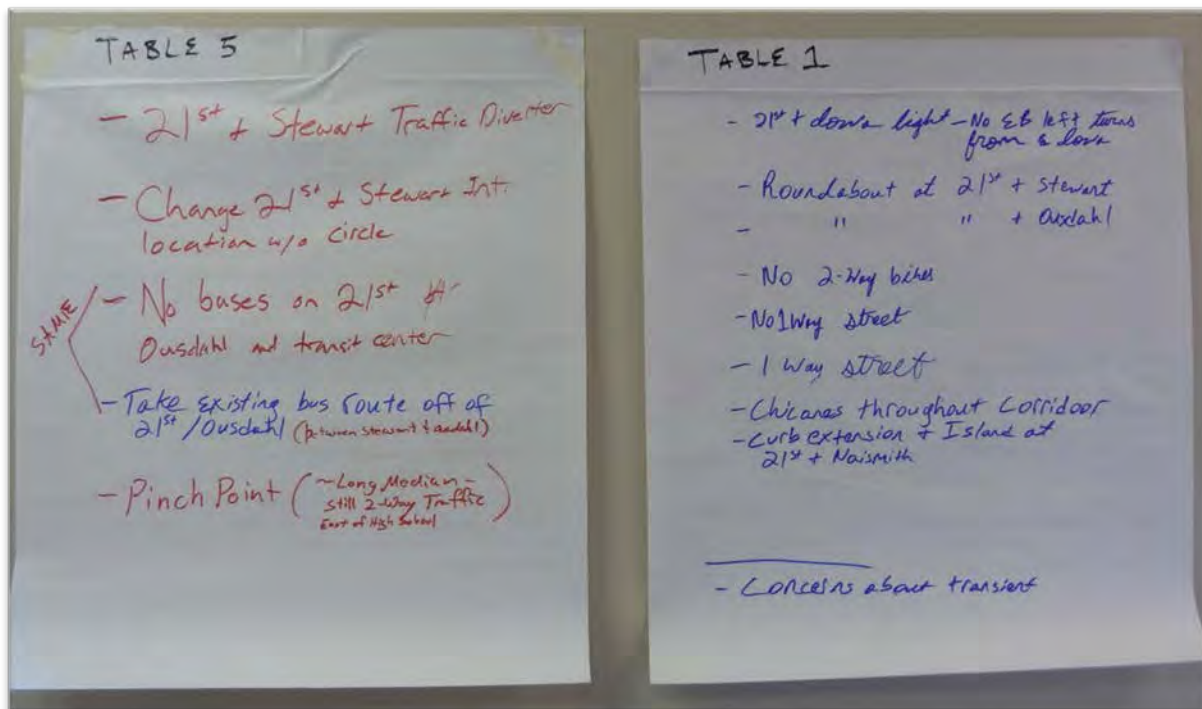 TABLE 5
- 21st + Stewart Traffic Diverter
- Change 21st + Stewart Int.
location w/o circle
SAME
- No buses on 21st
Ousdahl and transit center
- Take Existing bus route off of
21st / Ousdahl (between Stewart &
- Pinch Point ( ~Long Median -
Still 2-Way Traffic
East of High School )
TABLE 1
- 21st + Iowa light - No EB left turns
from Iowa
- Roundabout at 21st + Stewart
- " " + Ousdahl
- No 2-Way bikes
- No 1 Way street
- 1 Way street
- Chicanes throughout Corridor
- Curb extension + Island at
21st + Naismith
- Concerns about transient